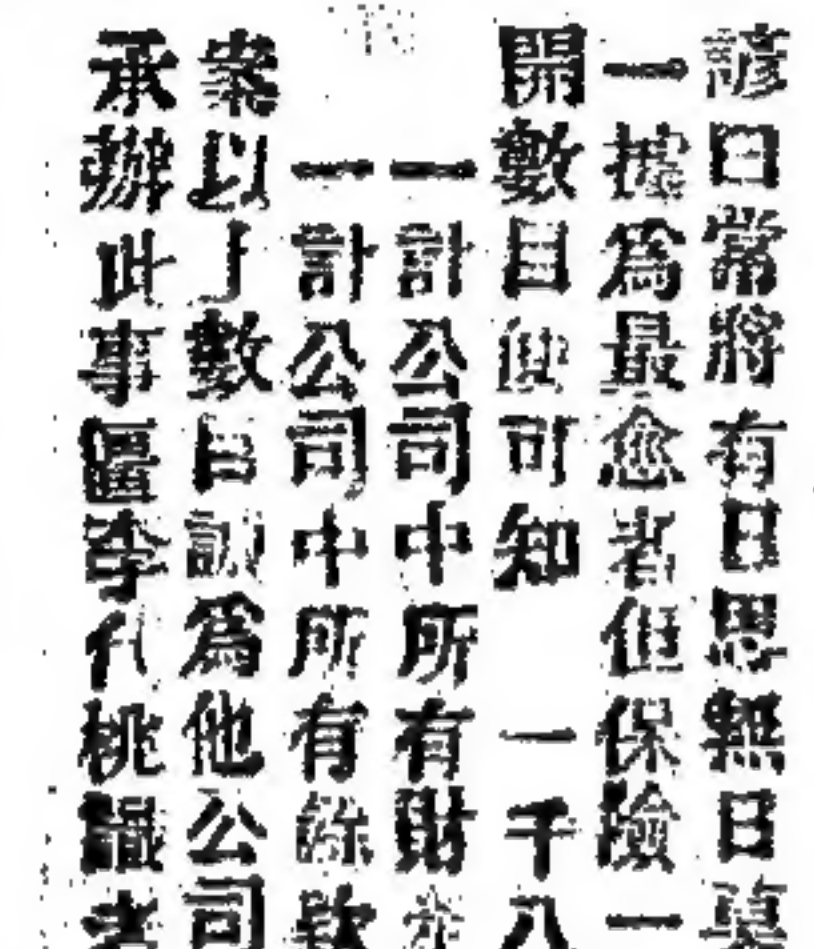 諺曰常將有日思無日莫
一據爲最愈者但保險一
開數目便可知　一千八
一計公司中所有財
一計公司中所有餘款
案以上數目誠爲他公司
承辦此事匱李代桃識者